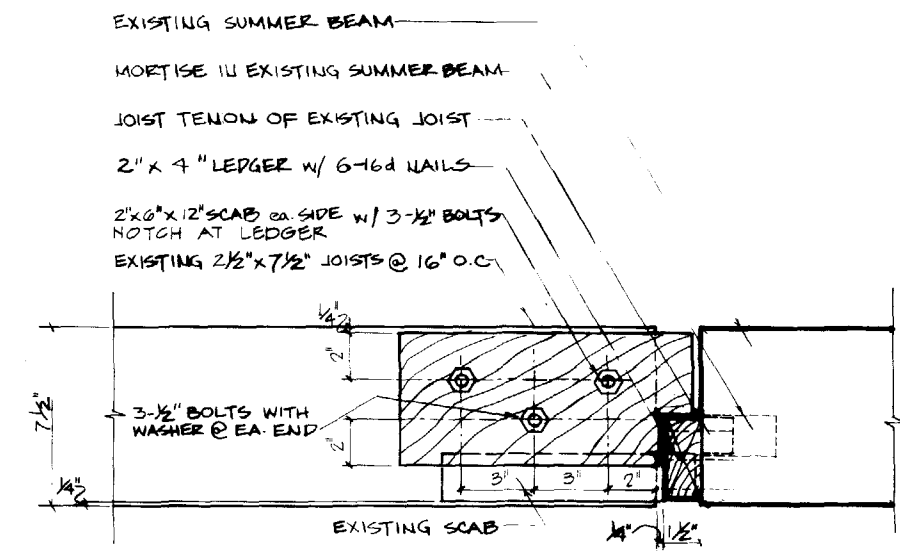 EXISTING SUMMER BEAM
MORTISE IN EXISTING SUMMER BEAM
JOIST TENON OF EXISTING JOIST
2" X 4" LEDGER W/ 6-16d NAILS
2"X6"X12" SCAB ea. SIDE W/ 3-½" BOLTS
NOTCH AT LEDGER
EXISTING 2½"X7½" JOISTS @ 16" O.C.
¼"
2"
7½"
3-½" BOLTS WITH
WASHER @ EA. END
2"
¼"
3" 3" 2"
EXISTING SCAB
¼" 1½"